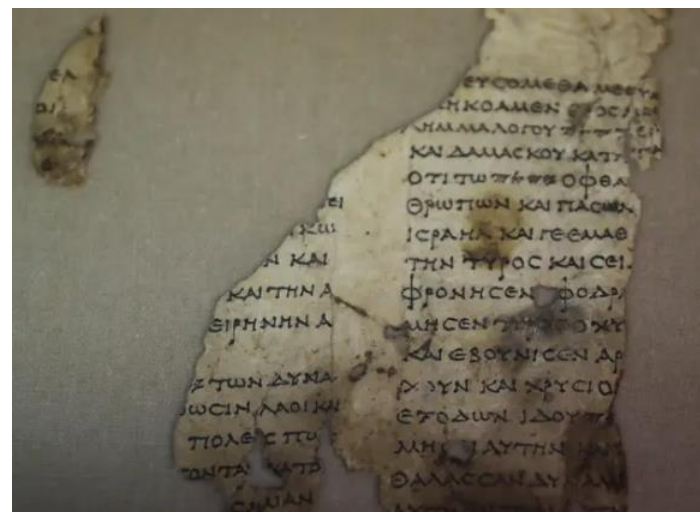 ΕΙ
Ν ΚΑΙ
ΚΑΙ ΤΗΝ Α
ΕΙΡΗΝΗΝ Α
ΤΩΝ ΔΥΝΑ
ΩϹΙΝ ΛΑΟΙ ΚΑ
ΠΟΛΕ Ϲ ΠΟ
ΟΝΤΑΙ ΚΑΤΑ
Ϲ ΜΙΑΝ
ΕΥϹΟΜΕΘΑ ΜΕΘ Υ
ΗΚΟΑΜΕΝ
ΛΗΜΜΑ ΛΟΓΟΥ
ΚΑΙ ΔΑΜΑϹΚΟΥ ΚΑΤ
ΟΤΙ ΤΩ ΟΦΘΑ
ΘΡΩΠΩΝ ΚΑΙ ΠΑϹΩΝ
ΙϹΡΑΗΛ ΚΑΙ ΓΕ ΕΜΑΘ
ΤΗΝ ΤΥΡΟϹ ΚΑΙ ϹΕΙ
ΦΡΟΝΗϹΕΝ ϹΦΟΔΡΑ
ΜΗϹΕΝ ΤΥΡΟϹ ΟΧΥ
ΚΑΙ ΕΒΟΥΝΙϹΕΝ ΑΡ
ΧΟΥΝ ΚΑΙ ΧΡΥϹΙΟ
ΕΞΟΔΩΝ ΙΔΟΥ
ΜΗϹ Ι ΑΥΤΗΝ ΚΑΙ
ΘΑΛΑϹϹΑΝ ΔΥΝΑΜΙ